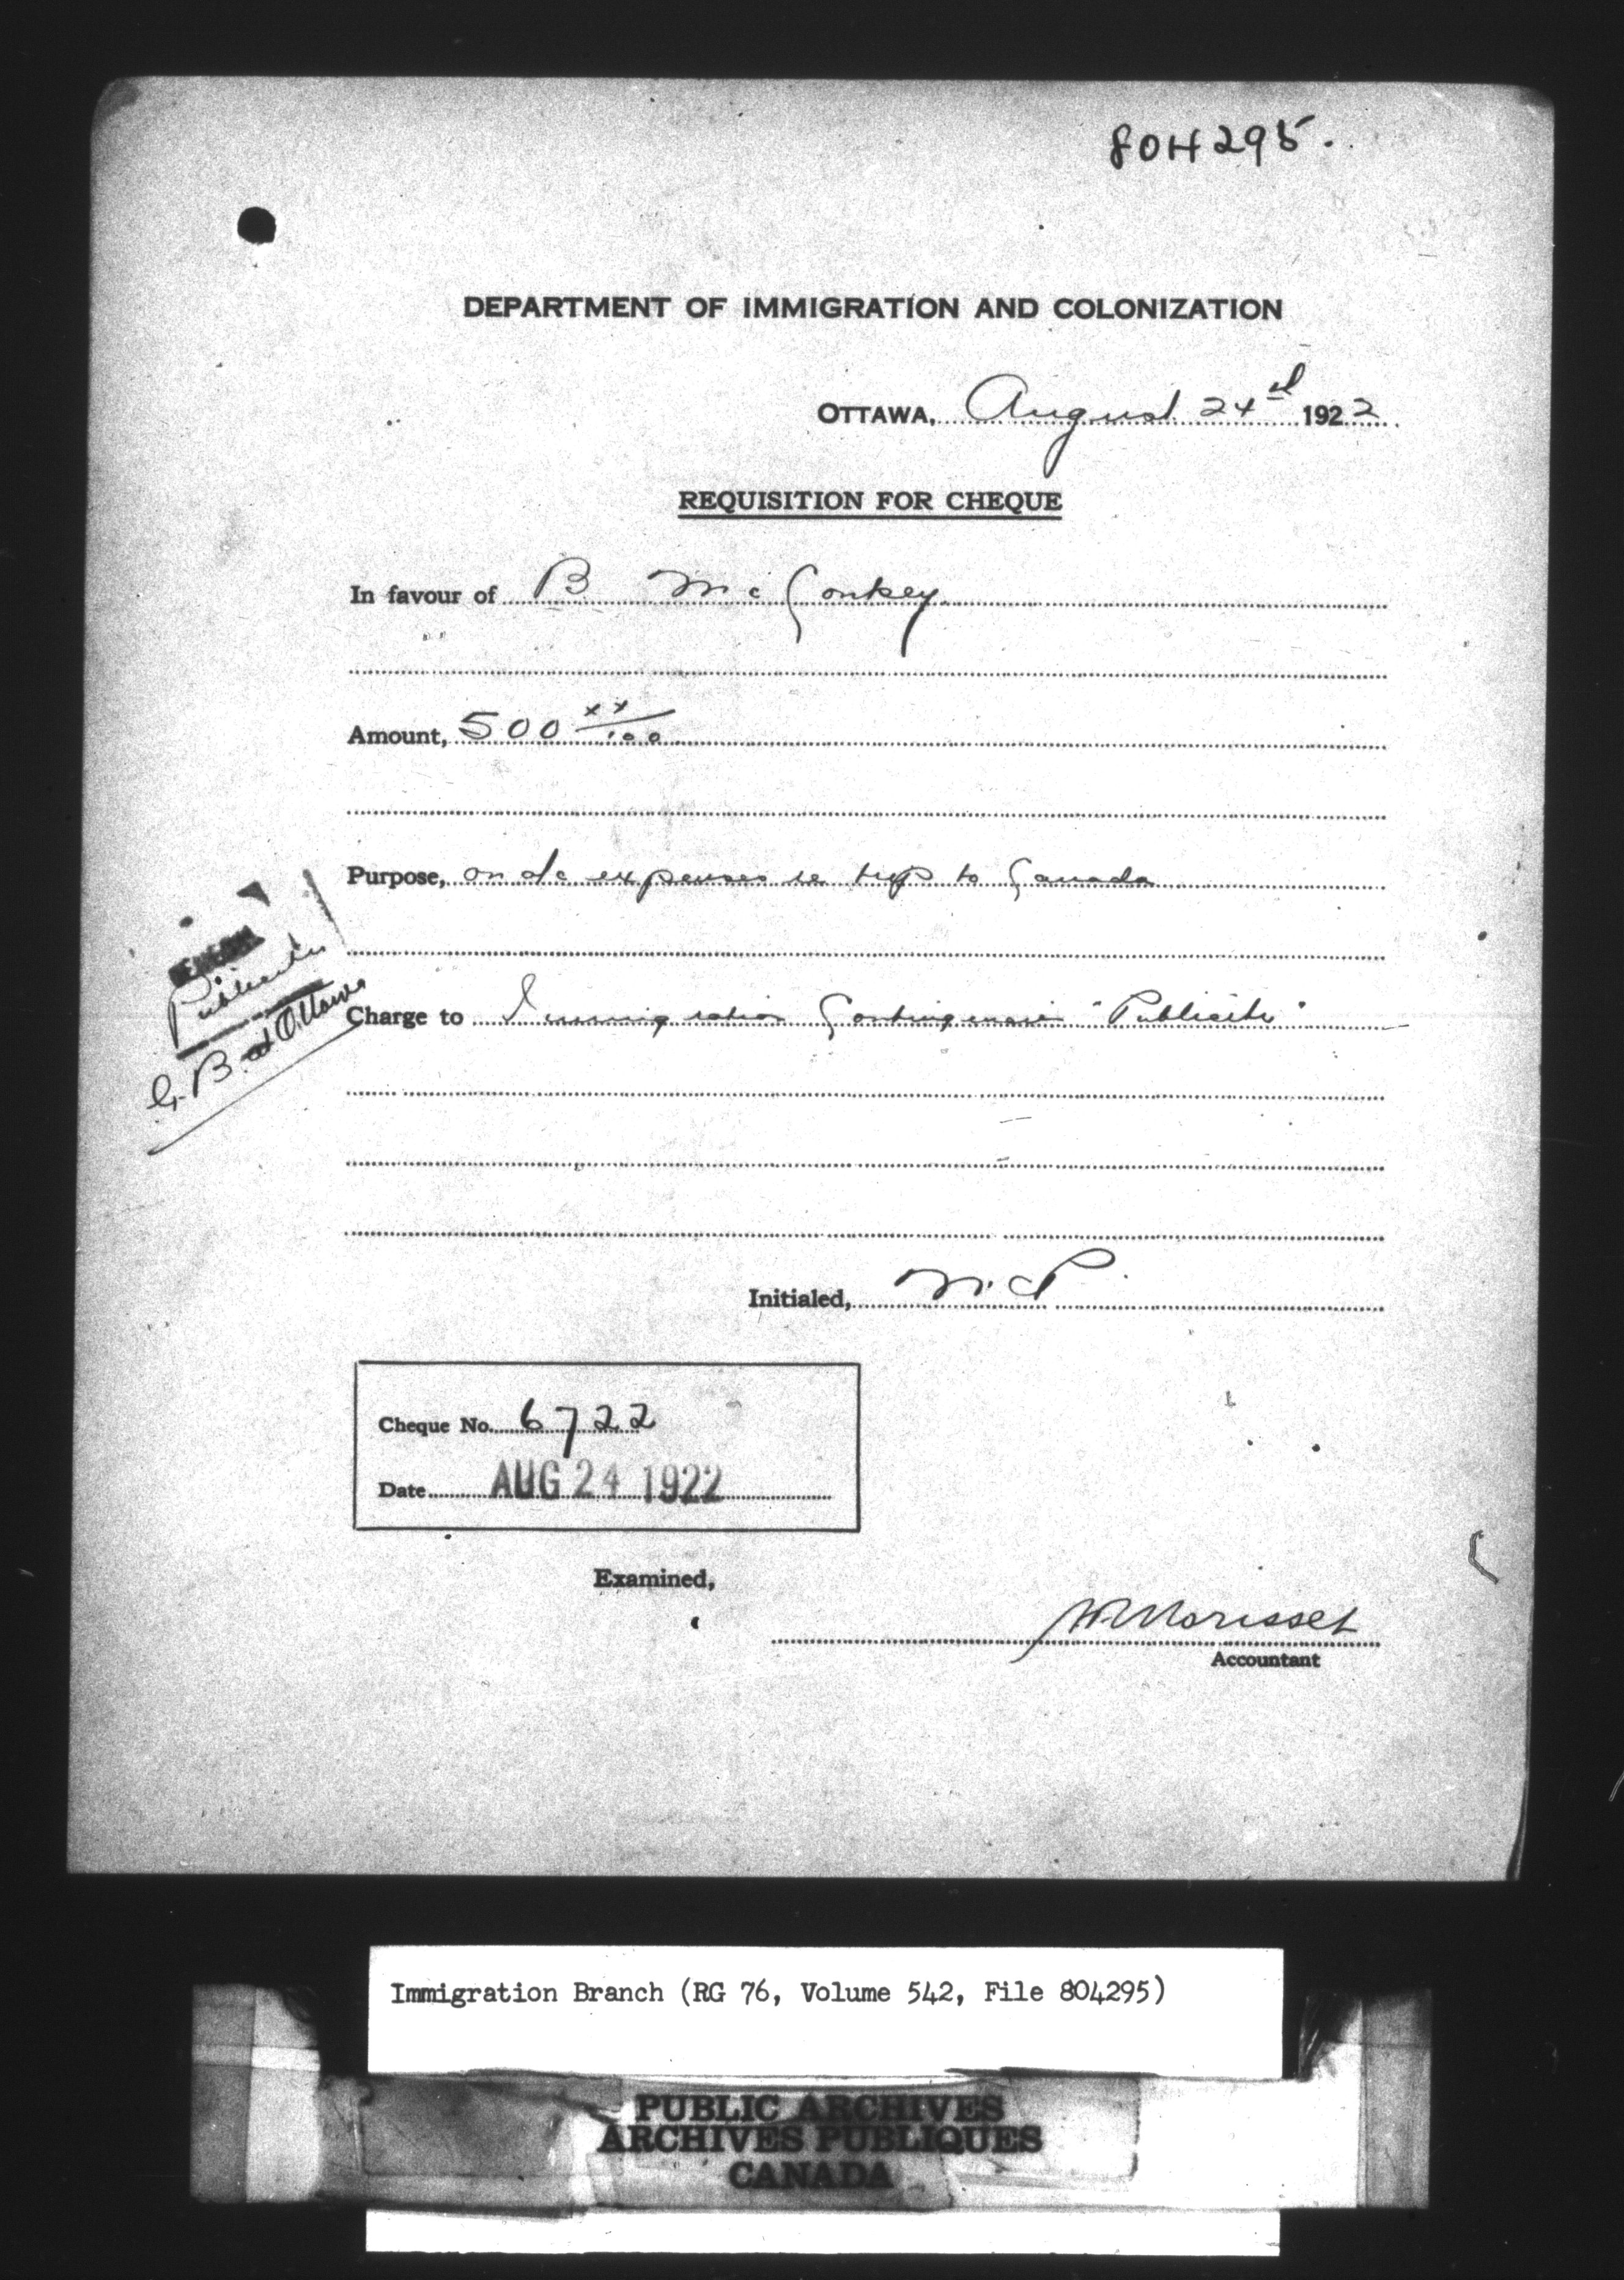 804295.
DEPARTMENT OF IMMIGRATION AND COLONIZATION
OTTAWA, August 24th 1922
REQUISITION FOR CHEQUE
In favour of B McConkey
Amount, 500 xx/100
Purpose, on a/c expenses re trip to Canada
Publicity
G. B. at Ottawa
Charge to Immigration Contingencies "Publicity"
Initialed,
Cheque No. 6722
Date AUG 24 1922
Examined,
Morisset
Accountant
Immigration Branch (RG 76, Volume 542, File 804295)
PUBLIC ARCHIVES
ARCHIVES PUBLIQUES
CANADA